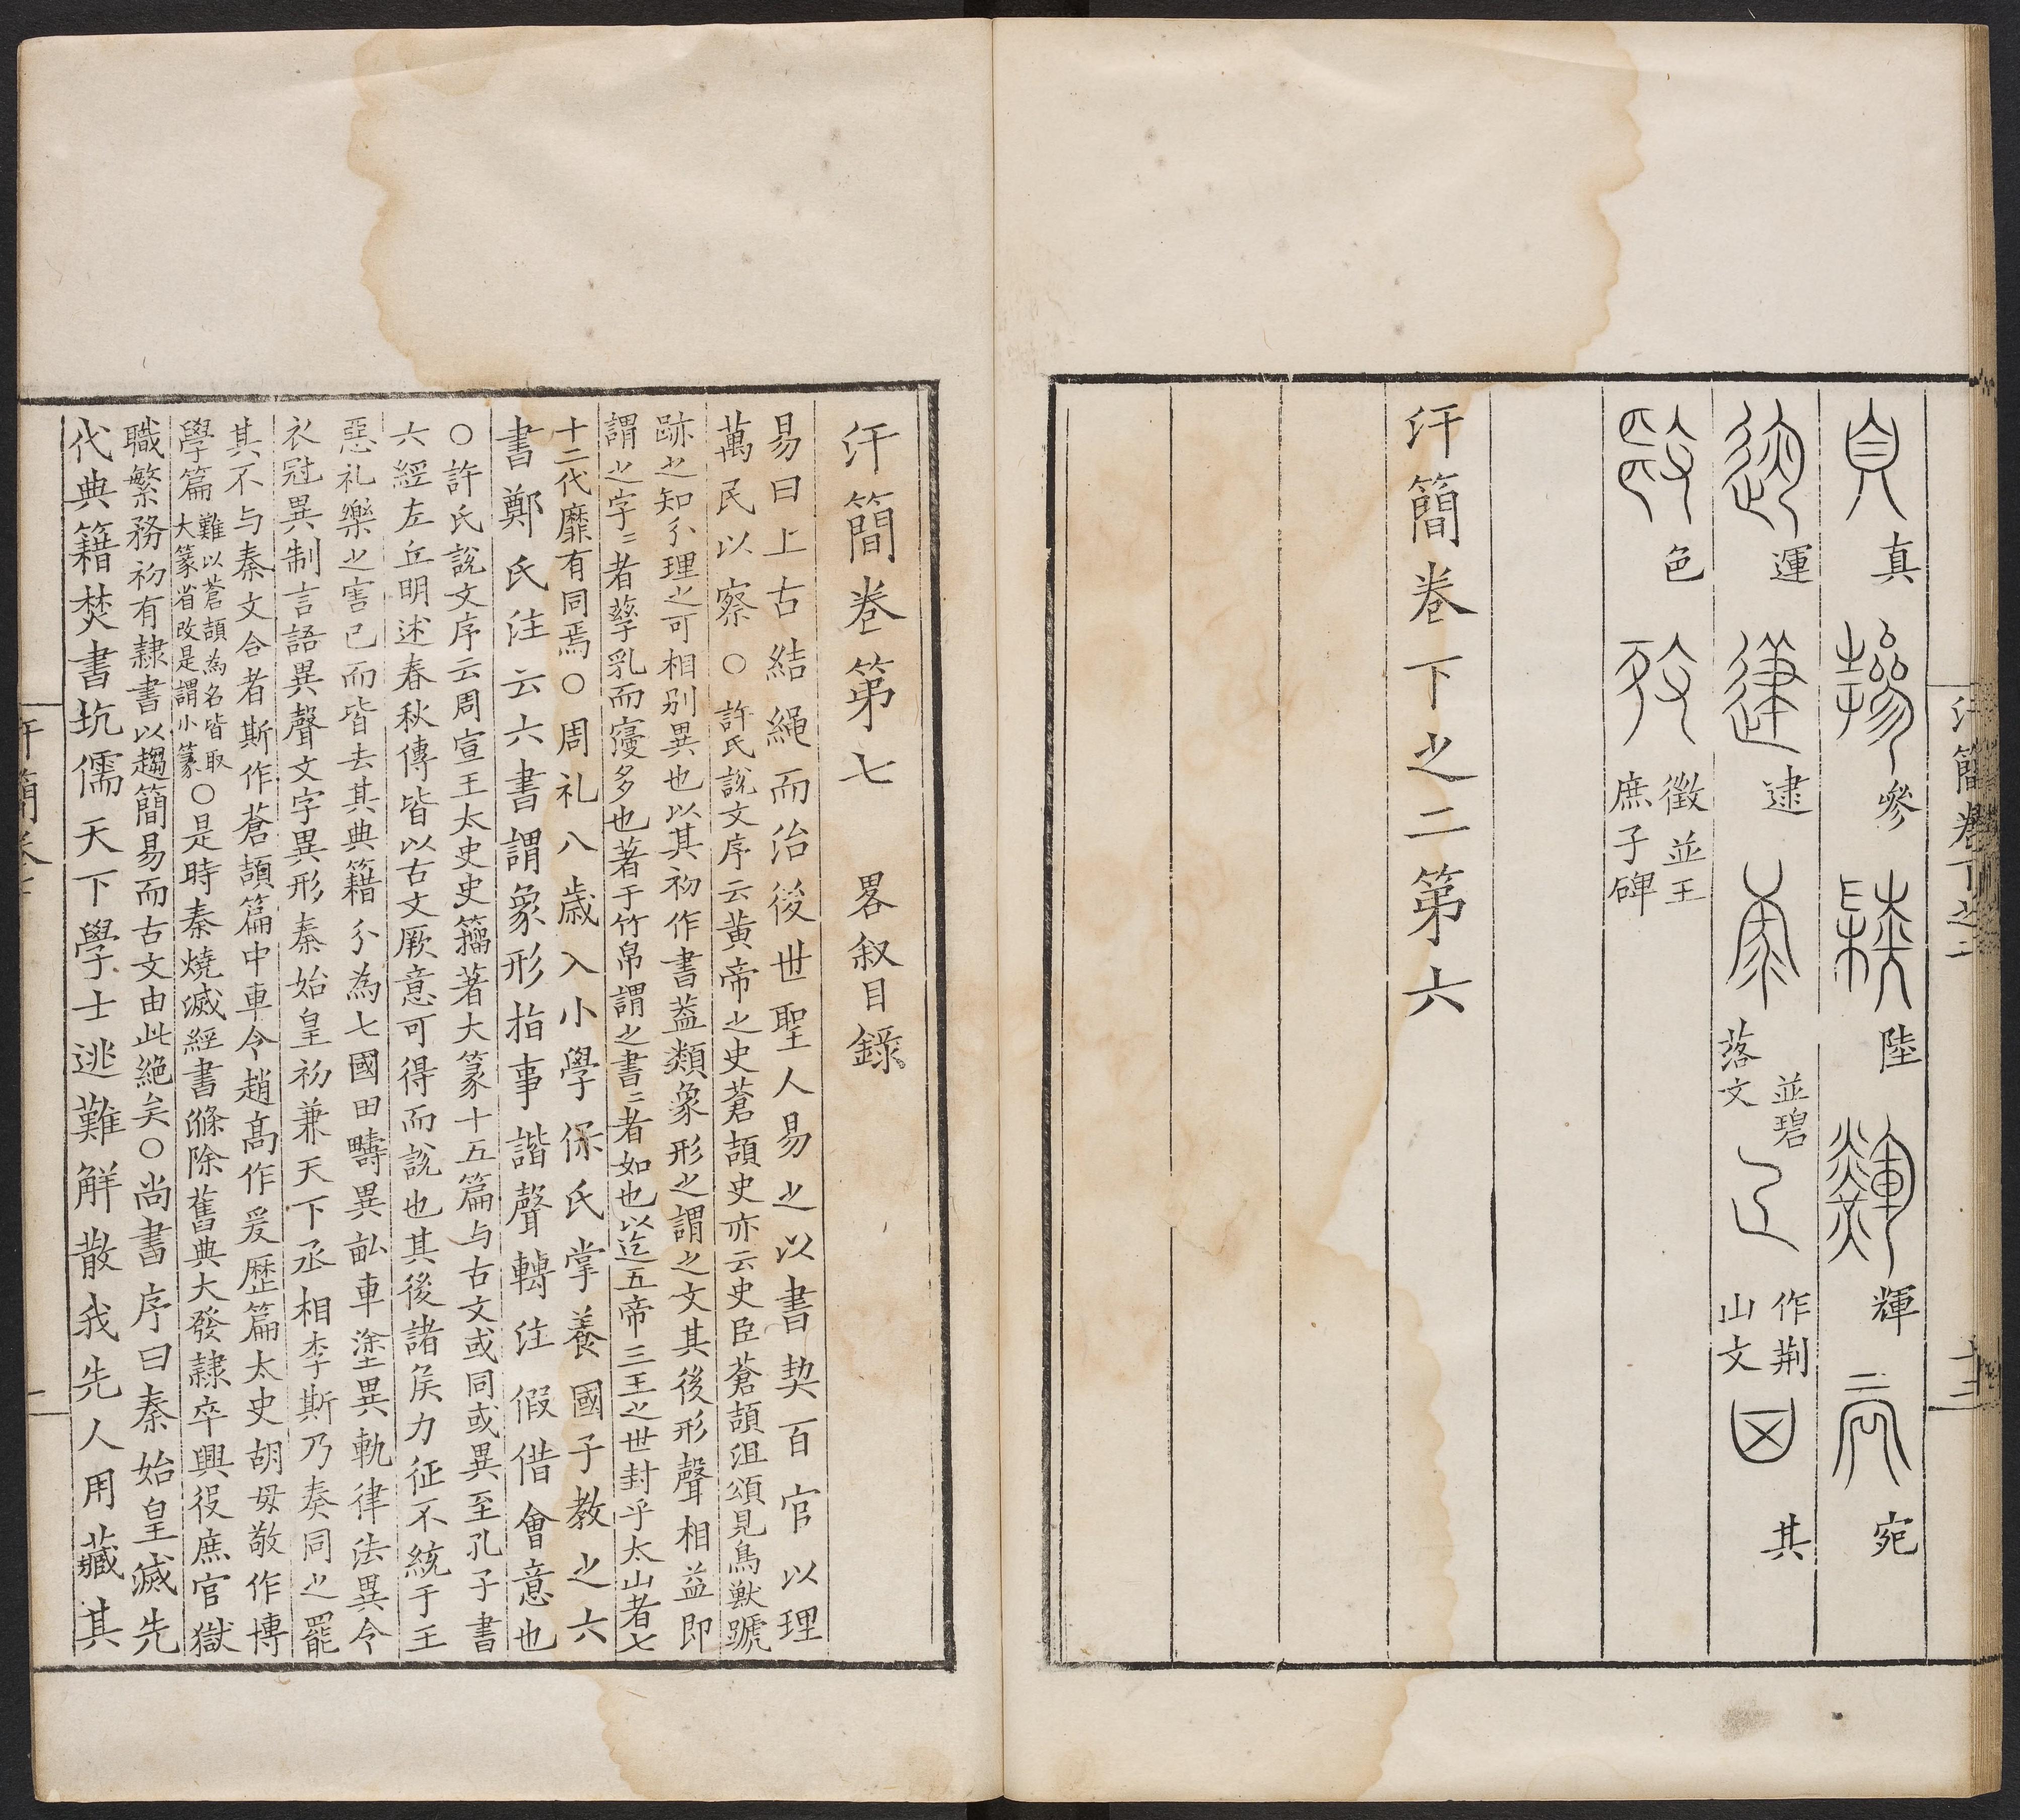 真 參 陸 輝 宛
運 逮 並碧落文 作荆山文 其
色 徵並王庶子碑
汗簡卷下之二第六
汗簡卷下之二 十三
汗簡卷第七 畧叙目錄
易曰上古結繩而治後世聖人易之以書契百官以理
萬民以察○許氏說文序云黄帝之史蒼頡史亦云史臣蒼頡沮頌見鳥獸蹏
跡之知分理之可相别異也以其初作書葢類象形之謂之文其後形聲相益即
謂之字=者孳乳而寖多也著于竹帛謂之書=者如也以迄五帝三王之世封乎太山者七
十二代靡有同焉○周礼八歲入小學保氏掌養國子教之六
書鄭氏注云六書謂象形指事諧聲轉注假借會意也
○許氏說文序云周宣王太史史籀著大篆十五篇与古文或同或異至孔子書
六經左丘明述春秋傳皆以古文厥意可得而說也其後諸侯力征不統于王
惡礼樂之害己而皆去其典籍分為七國田疇異畝車塗異軌律法異令
衣冠異制言語異聲文字異形秦始皇初兼天下丞相李斯乃奏同之罷
其不与秦文合者斯作蒼頡篇中車令趙高作爰歷篇太史胡毋敬作博
學篇難以蒼頡為名皆取大篆省改是謂小篆○是時秦燒滅經書滌除舊典大發隸卒興役庶官獄
職繁務初有隸書以趨簡易而古文由此絶矣○尚書序曰秦始皇滅先
代典籍焚書坑儒天下學士逃難解散我先人用藏其
汗簡卷七 一